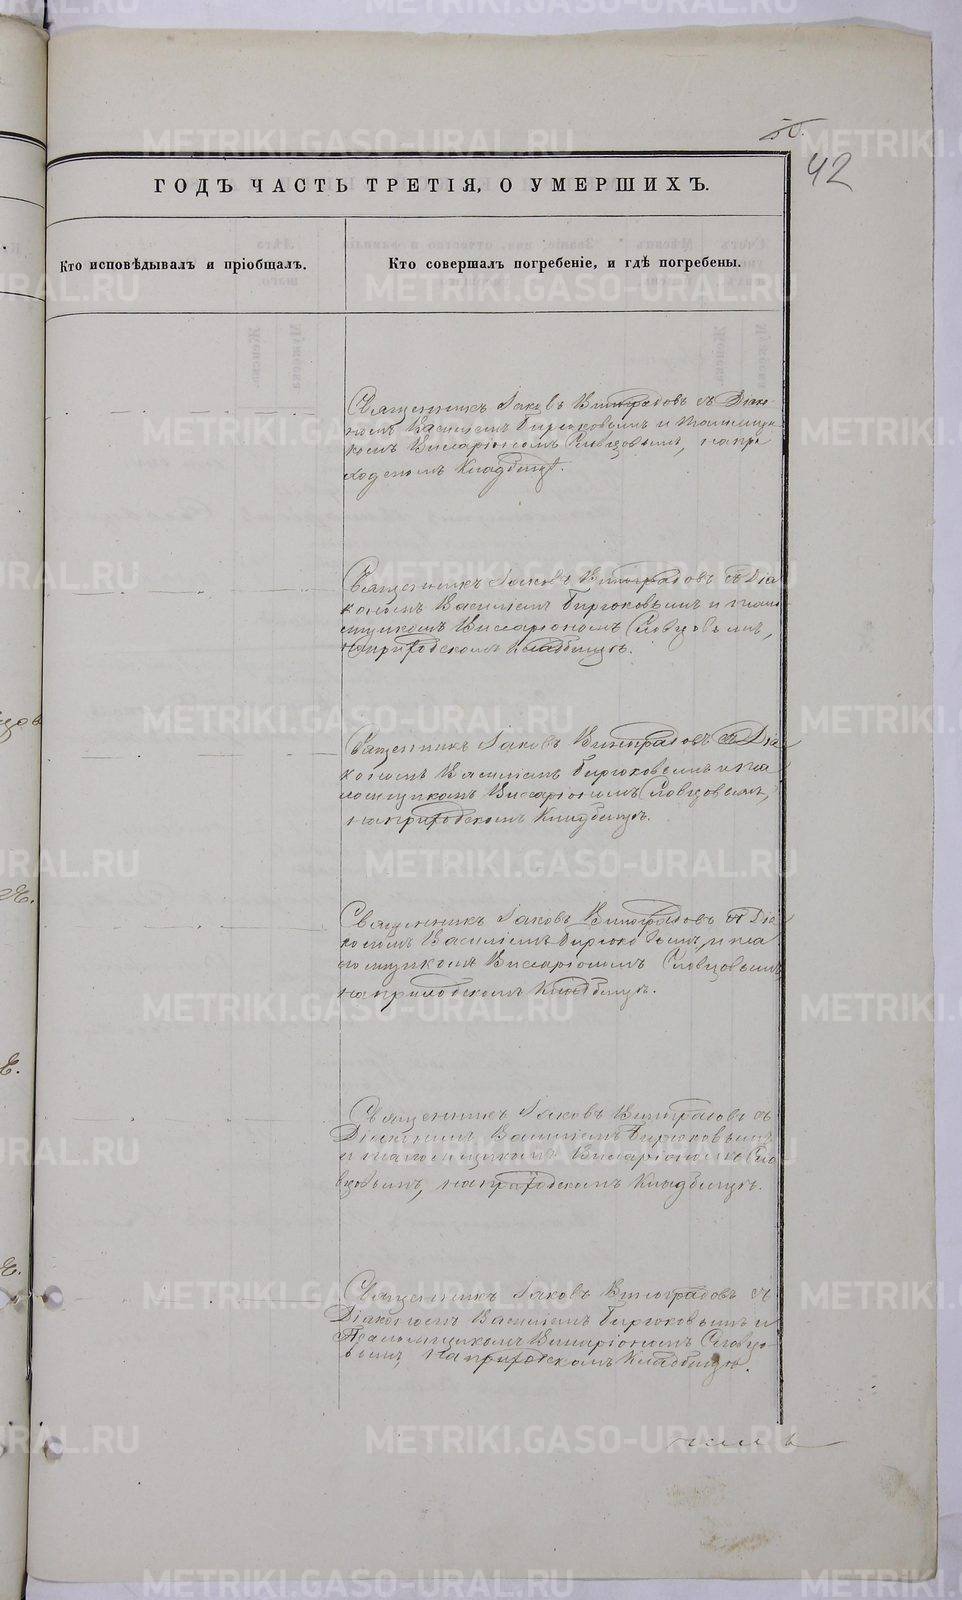 50.
42
ГОДЪ ЧАСТЬ ТРЕТІЯ, О УМЕРШИХЪ.
Кто исповѣдывалъ и пріобщалъ.
Кто совершалъ погребеніе, и гдѣ погребены.
Священникъ Іаковъ Виноградовъ съ Діако-
номъ Василіемъ Бирюковымъ и Псаломщи-
комъ Висаріономъ Словцовымъ, на при
ходскомъ Кладбищѣ.
Священникъ Іаковъ Виноградовъ съ Діа
кономъ Василіемъ Бирюковымъ и псало
мщикомъ Виссаріономъ Словцовымъ,
на приходскомъ кладбищѣ.
Священникъ Іаковъ Виноградовъ съ Діа
кономъ Василіемъ Бирюковымъ и пса
ломщикомъ Виссаріономъ Словцовымъ,
на приходскомъ Кладбищѣ.
Священникъ Іаковъ Виноградовъ съ Діа
кономъ Василіемъ Бирюковымъ, и пса
ломщикомъ Виссаріономъ Словцовымъ
на приходскомъ Кладбищѣ.
Священникъ Іаковъ Виноградовъ съ
Діакономъ Василіемъ Бирюковымъ
и псаломщикомъ Висаріономъ Сло
вцовымъ, на приходскомъ Кладбищѣ.
Священникъ Іаковъ Виноградовъ съ
Діакономъ Василіемъ Бирюковымъ и
Псаломщикомъ Висаріономъ Словцо-
вымъ на приходскомъ Кладбищѣ.
METRIKI.GASO-URAL.RU